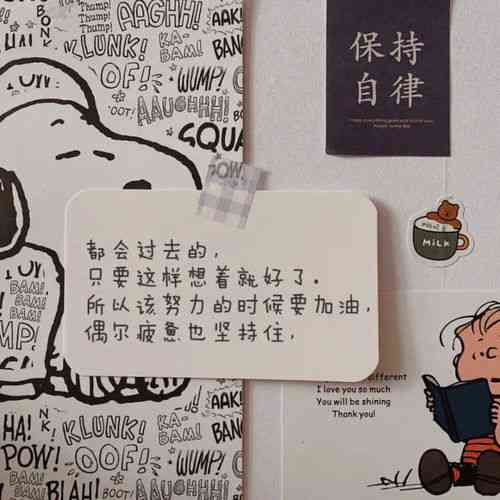 Thump!
Thump!
Thump!
AAGHH!
AAK!
BONK
KLUNK!
OOF!
KA-
BAM!
BANG
WUMP!
AAUGHHH!
AAK!
BAM!
OOT!
SQUA
POW!
保持
自律
MILK
都会过去的，
只要这样想着就好了。
所以该努力的时候要加油，
偶尔疲惫也坚持住，
BAM!
BAM!
BAM!
different
I love you so much
You will be shining
Thank you!
HA!
POW!
KLUNK!
OOF!
KA-
BAM!
BANG
WUMP!
AAUGHHH!
BLAH!
BOOT!
SQUA